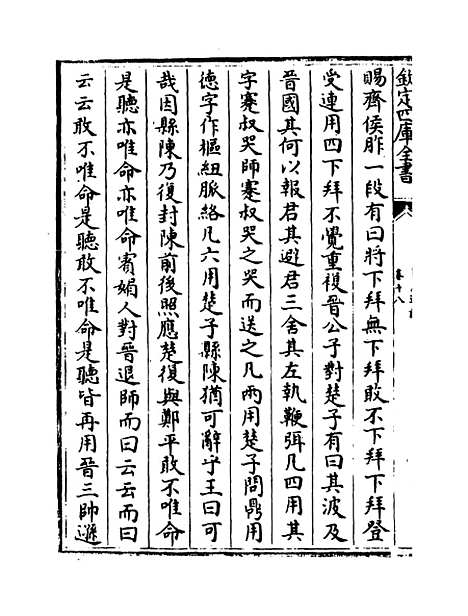 欽定四庫全書
卷十八
賜齊侯胙一段有曰將下拜無下拜敢不下拜下拜登
受連用四下拜不覺重復晉公子對楚子有曰其波及
晉國其何以報君其避君三舍其左執鞭弭凡四用其
字蹇叔哭師蹇叔哭之哭而送之凡兩用楚子問鼎用
徳字作樞紐脈絡凡六用楚子縣陳猶可辭乎王曰可
哉因縣陳乃復封陳前後照應楚復與鄭平敢不唯命
是聽亦唯命亦唯命賓媚人對晉退師而曰云云而曰
云云敢不唯命是聽敢不唯命是聽皆再用晉三帥遜